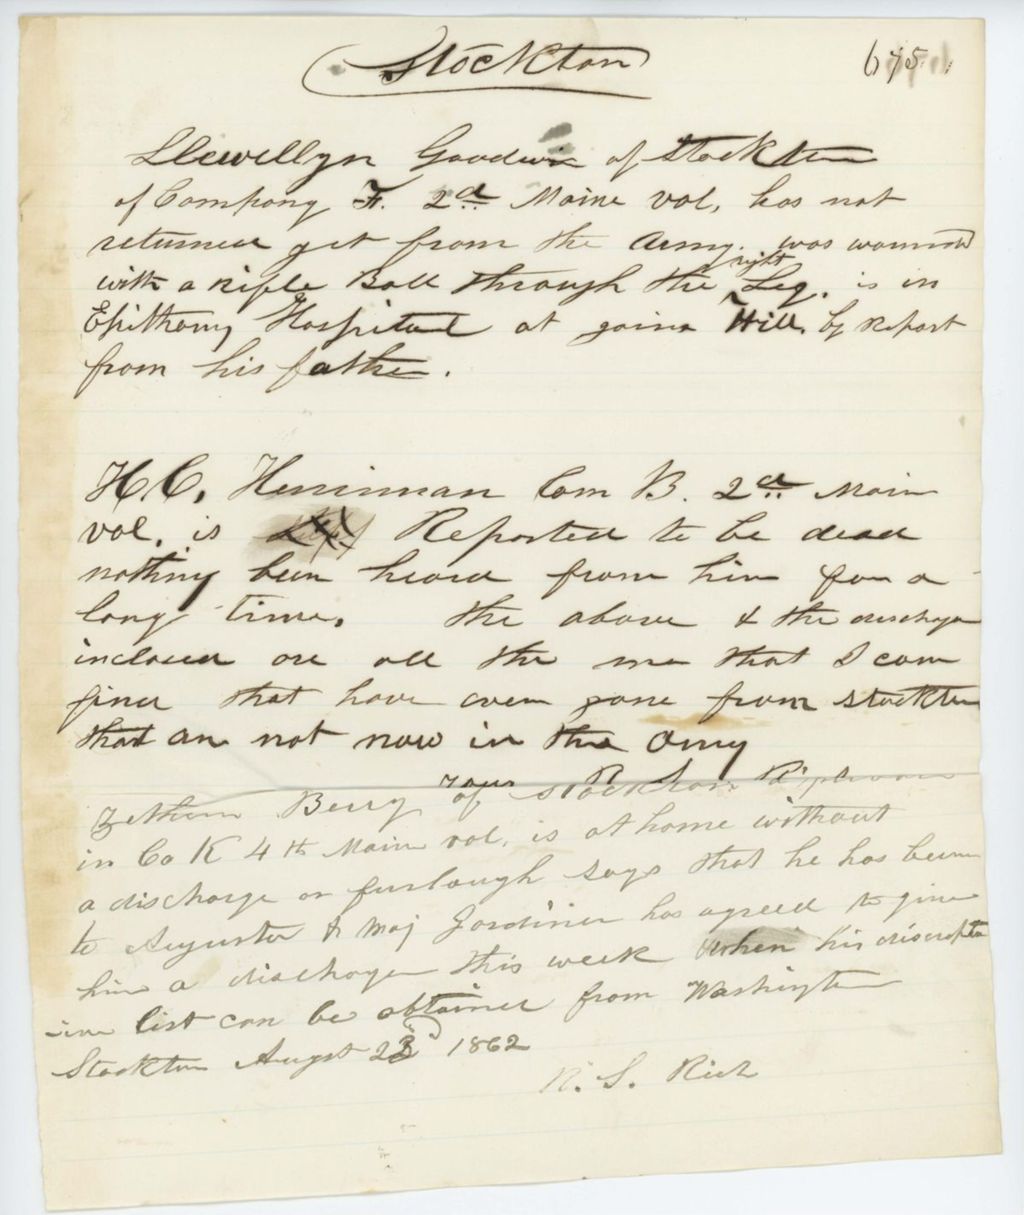 Stockton
675
Llewellyn Goodwin of Stockton
of Company F. 2d Maine vol, has not
returned yet from the Army. was wound
with a rifle Ball through the right Leg. is in
Epithany Hospital at gains Hill, by Report
from his father.
H C, Herriman Com B. 2d Main
vol, is Reported to be dead
nothing been heard from him for a
long time. the above & the discharge
inclosed are all the me that I can
find that have ever gone from Stockton
that are not now in the army
Berry of Stockton
in Co K 4th Maine vol, is at home without
a discharge or furlough says that he has been
to Augusta & Maj Gardiner has agreed to give
him a discharge this week when his discript
ive list can be obtained from Washington
Stockton Augst 23d 1862
N. S. Rich